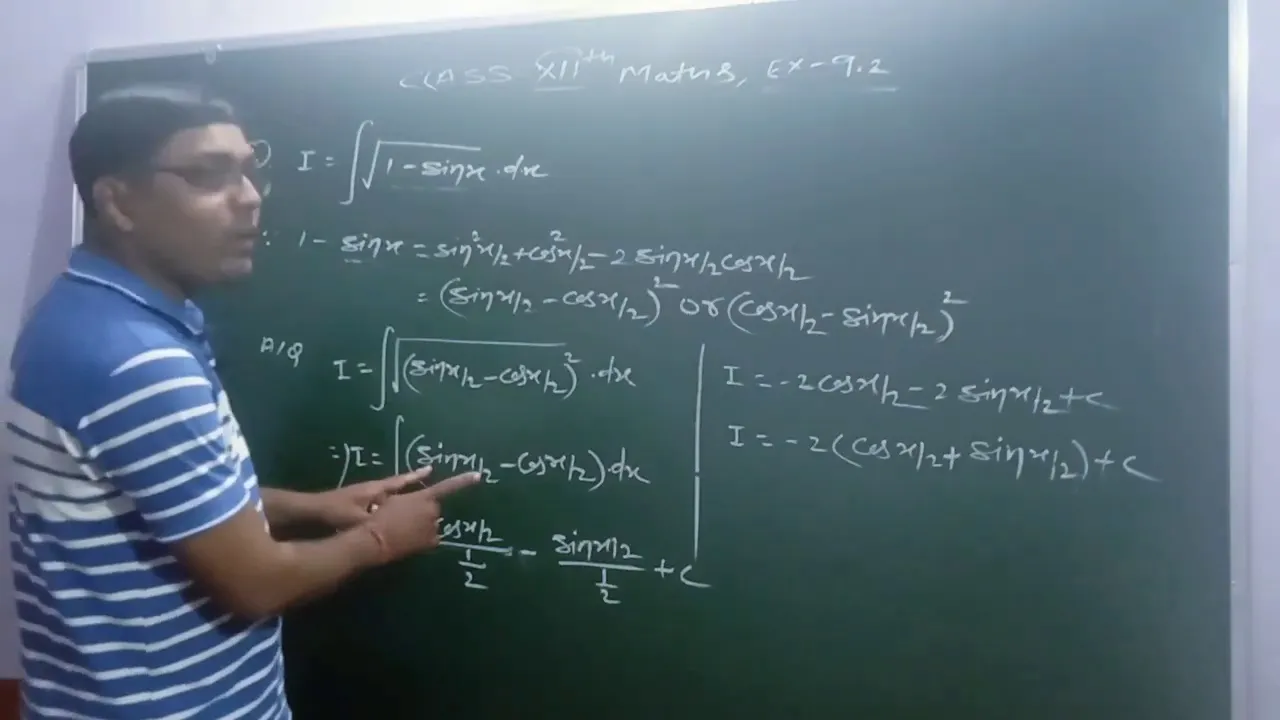 CLASS XIIth Maths, EX-9.2
I = ∫√(1 - sinx) . dx
∵ 1 - sinx = sin²x/2 + cos²x/2 - 2 sinx/2 cosx/2
= (sinx/2 - cosx/2)² or (cosx/2 - sinx/2)²
A/Q I = ∫√(sinx/2 - cosx/2)² . dx
=) I = ∫(sinx/2 - cosx/2) . dx
cosx/2 / 1/2 - sinx/2 / 1/2 + c
I = -2 cosx/2 - 2 sinx/2 + c
I = -2 (cosx/2 + sinx/2) + c